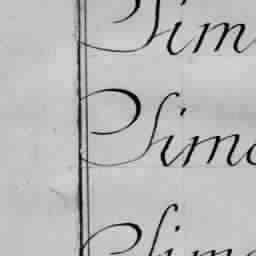 Sim
Simo
Sim